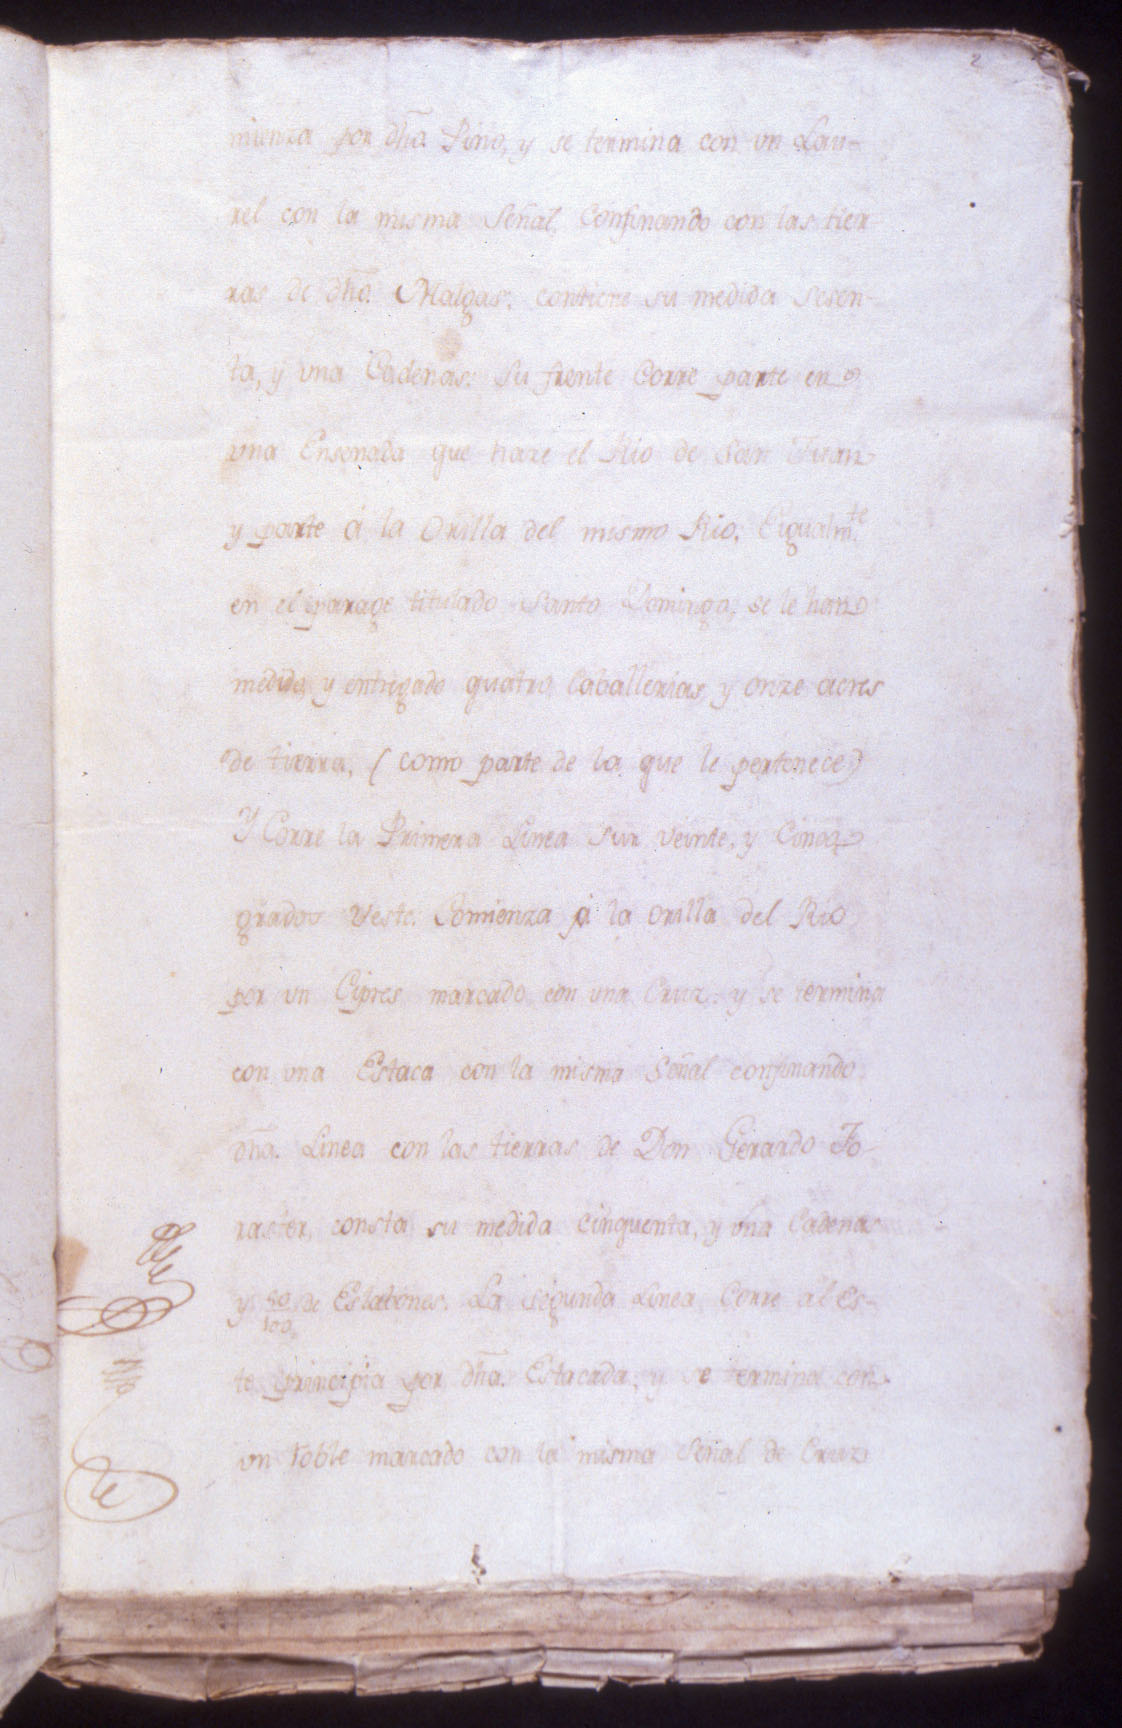 2
mienza por dha. Pino, y se termina con un Lau-
rel con la misma Señal, Confinando con las tier
ras de dho. Malgas: contiene su medida Sesen-
ta, y una Cadenas: Su frente Corre parte en
una Ensenada que haze el Rio de San Juan
y parte á la Orilla del mismo Rio. Egualmte.
en el parage titulado Santo Domingo, se le han
medido, y entregado quatro Caballerias, y onze acres
de tierra, (como parte de la que le pertenece)
Y Corre la Primera Linea Sur veinte, y Cinco
grados Veste. Comienza á la orilla del Rio
por un Cipres marcado con una Cruz: y se termina
con una Estaca con la misma Señal confinando
dha. Linea con las tierras de Don Gerardo Fo-
raster, consta su medida cinquenta, y una Cadenas
y 50/100 de Eslabones. La segunda Linea Corre al Es-
te principia por dha. Estacada, y se termina con
un roble marcado con la misma Señal de Cruz